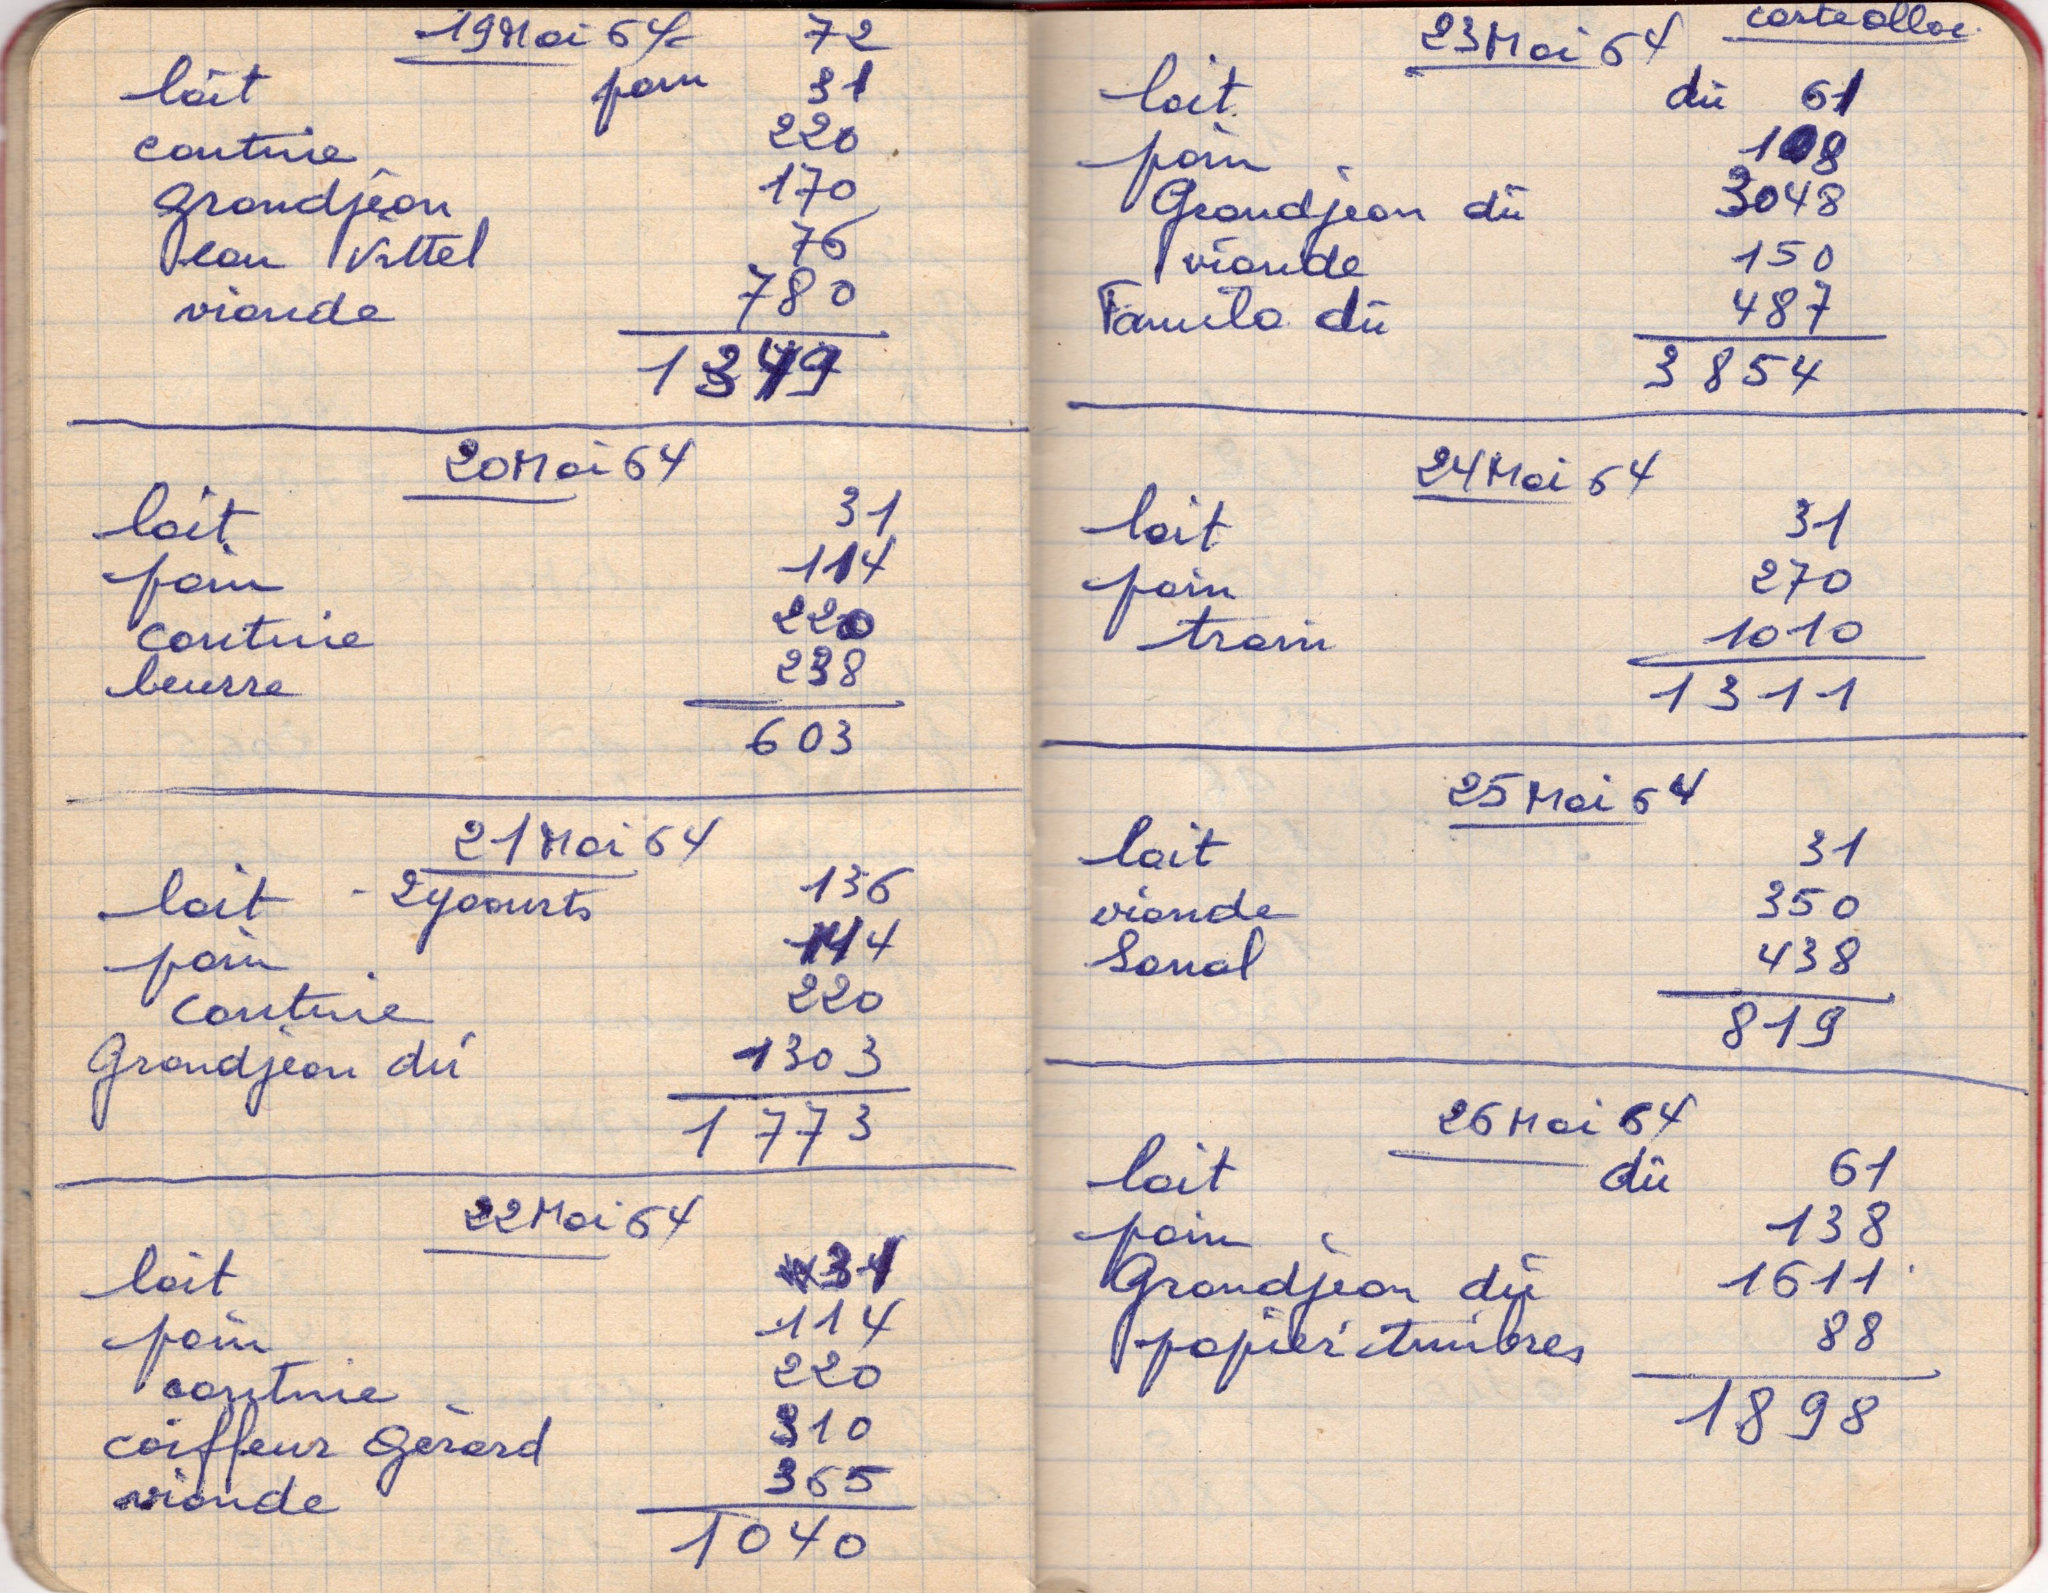 19 Mai 64 72
lait pain 31
couture 220
Grandjean 170
eau Vittel 76
viande 780
1349
20 Mai 64
lait 31
pain 114
couture 220
beurre 238
603
21 Mai 64
lait - 2 yaourts 136
pain 114
couture 220
Grandjean dû 1303
1773
22 Mai 64
lait 31
pain 114
couture 220
coiffeur Gérard 310
viande 365
1040
carte alloc.
23 Mai 64
lait dû 61
pain 108
Grandjean dû 3048
viande 150
Familo dû 487
3854
24 Mai 64
lait 31
pain 270
train 1010
1311
25 Mai 64
lait 31
viande 350
438
819
26 Mai 64
lait dû 61
pain 138
Grandjean dû 1611
papier timbres 88
1898